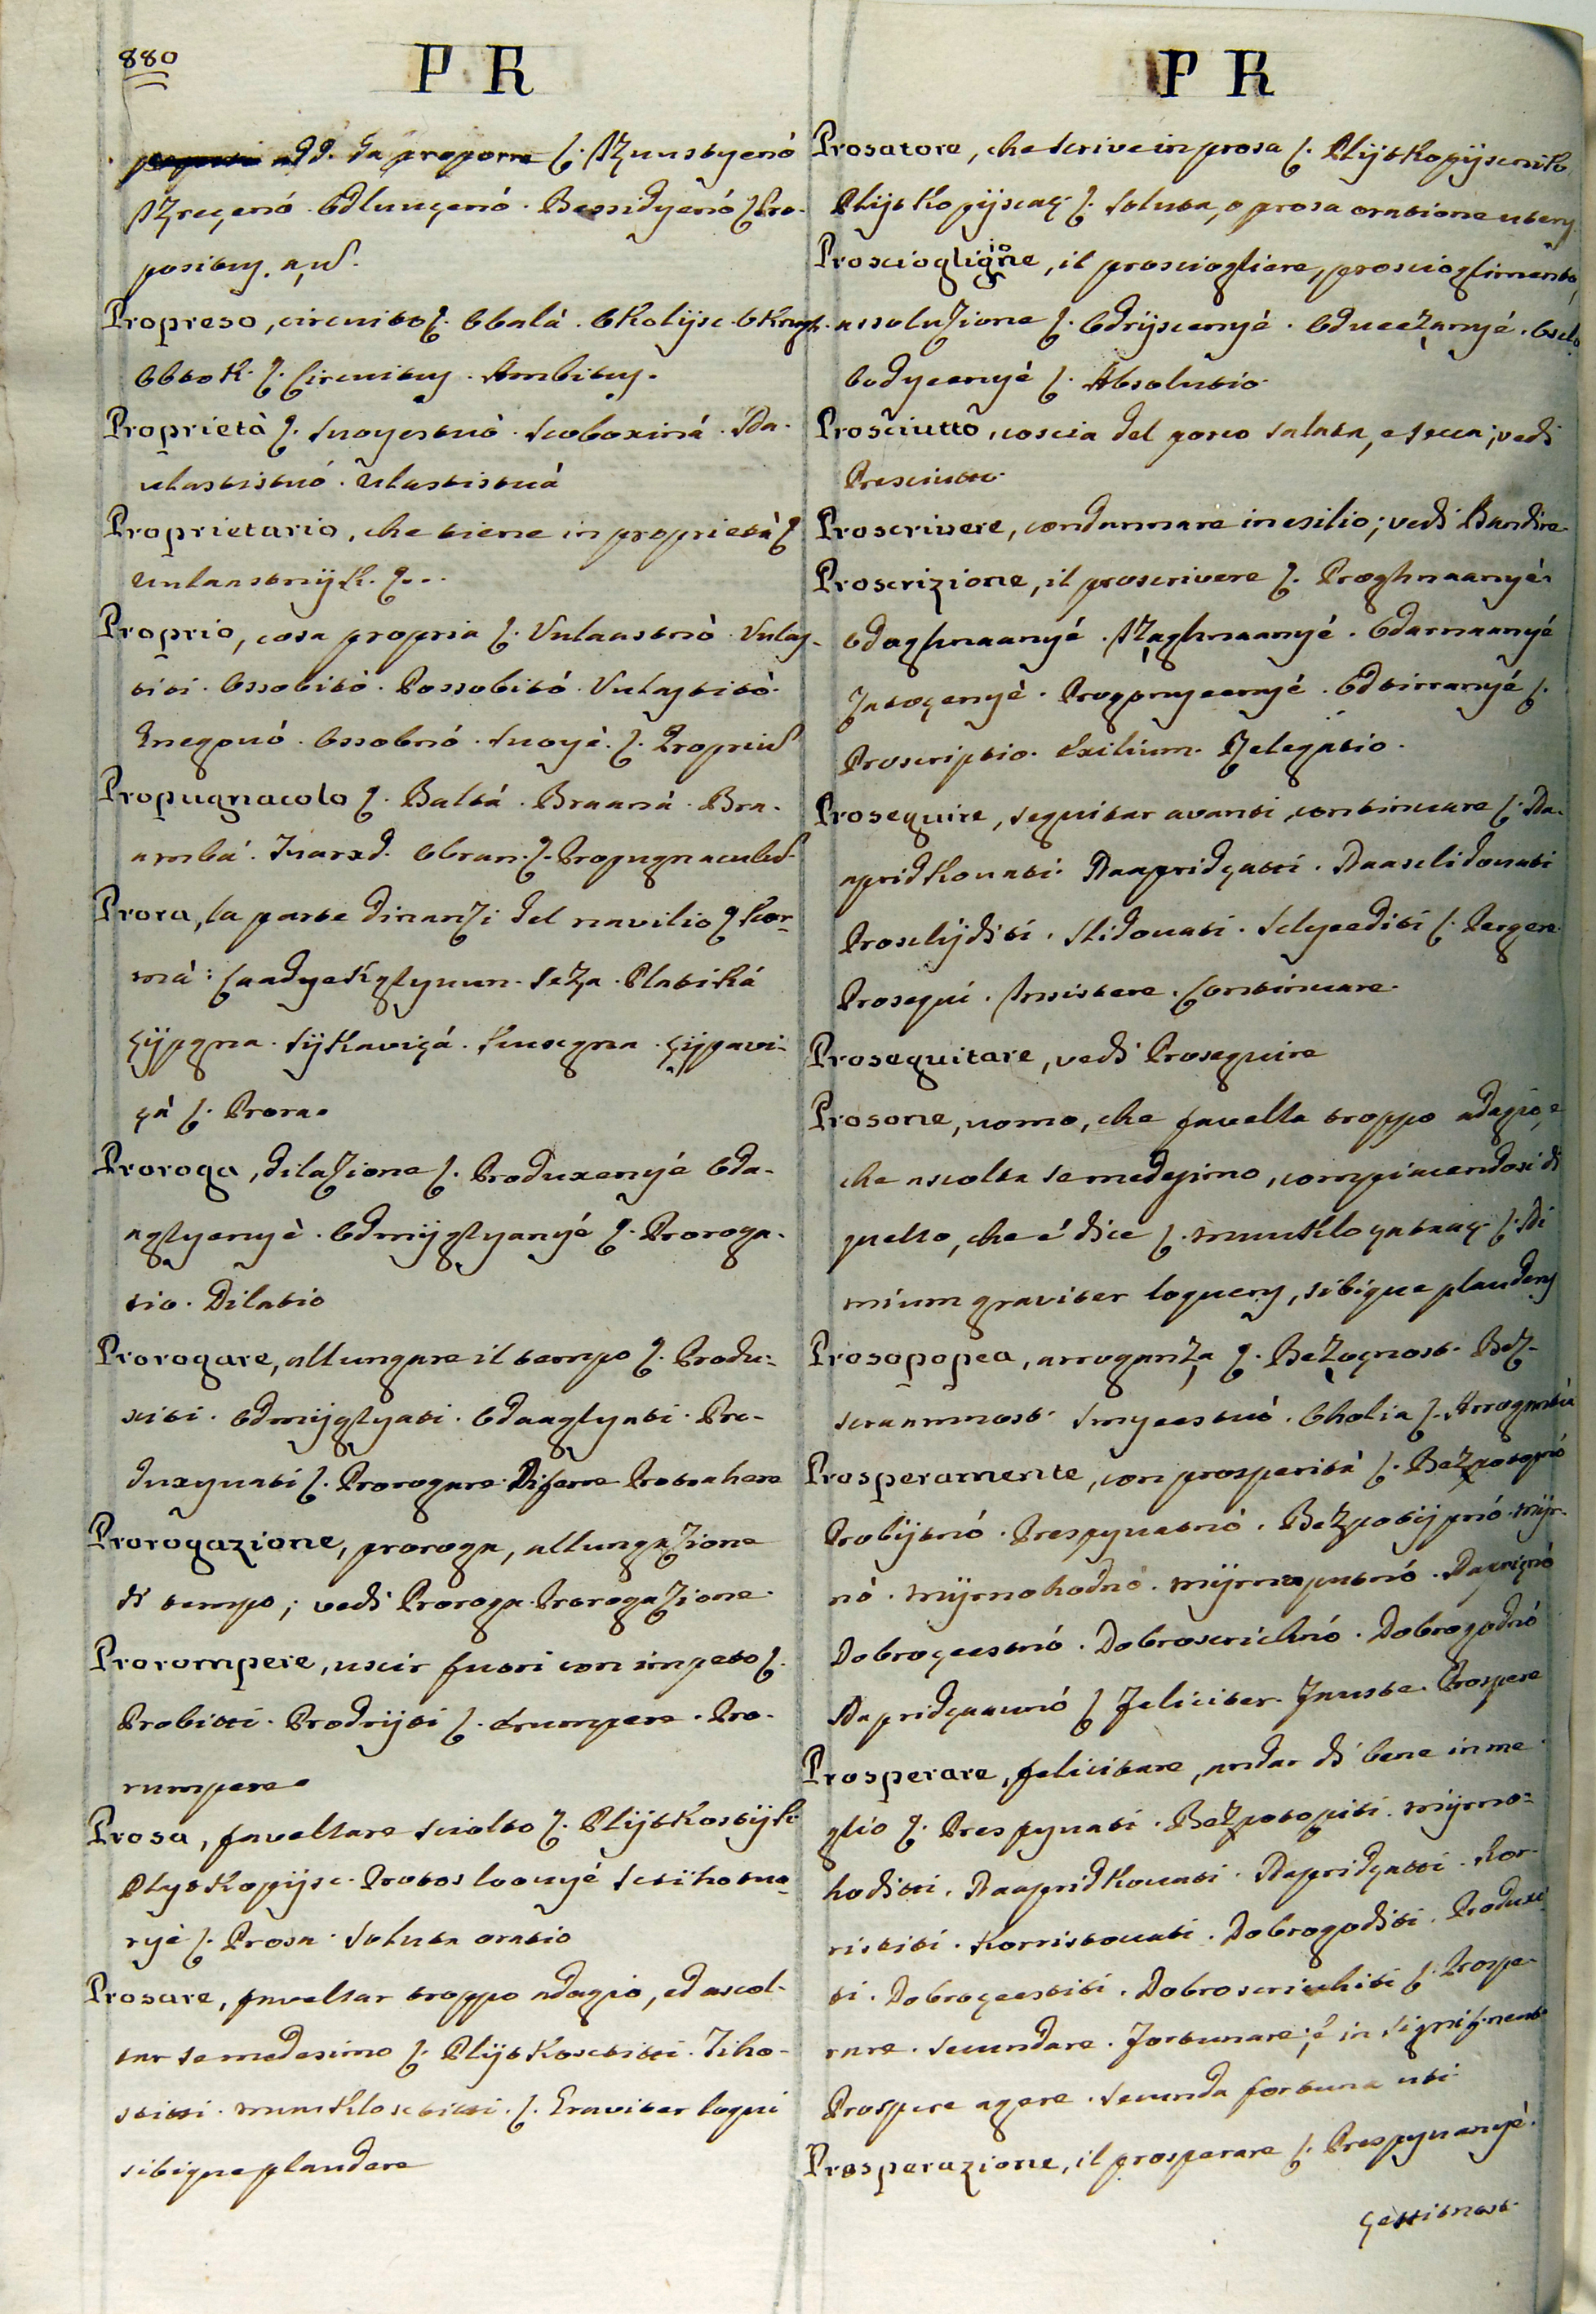 880
P R
P R
add. da proporre ſ. Iʒuustyenó
Iʒreçenó. Odlunçenó. Bessidyenó ſ Pro-
positus, a, ud.
Propreso, circuito ſ. Obalá. Okolijsc. Okrugh.
Obtok. ſ. Circuitus. Ambitus.
Proprietà ſ. Suoyestuò. Scoboxiná. Sda-
ulastistuó. Ulastistuá
Proprietario, che tiene in proprietà ſ
Uulaastnijk. ſ...
Proprio, cosa propria ſ. Vulaastnò. Vulas-
titi. Ossobitò. Possobitó. Vulastitò.
Gnegouó. Ossobnó. Suoyè. ſ. Proprius
Propugnacolo ſ. Baltá. Braaná. Bra-
amba. Tuarxd. Obran. ſ. Propugnaculud.
Prora, la parte dinanzi del navilio ſ Kor-
má: Saadyekglyuun. Seʒa. Platiká
ſ. Prora.
Proroga, dilazione ſ. Produxenyé Oda-
aglyenyè. Odmijglyanyé ſ. Proroga-
tio. Dilatio
Prorogare, allungare il tempo ſ. Produ-
xiti. Odmijglyati. Odaaglyati. Pro-
duxyuati ſ. Prorogare. Diferre Protrahere
Prorogazione, proroga, allungazione
di tempo; vedi Proroga. Prorogazione.
Prorompere, uscir fuori con impeto ſ.
Probitti. Prodrijti ſ. Erumpere. Pro-
rumpere.
Prosa, favellare sciolto ſ. Plijtkostijh
Plytkopijsc. Protosloouyé Sctihotuo-
ryè ſ. Prosa. Soluta oratio
Prosare, favellar troppo adagio, ed ascol-
tar se medesimo ſ. Plijtkosctitti. Tiho-
stitti. ſ. Graviter loqui
sibique plaudere
Prosatore, che scrive in prosa ſ. Plijtkopijscnik
Plijtkopijscaç ſ. Soluta, o prosa oratione utens
Prosciogligione, il prosciogliere, proscioglimento,
assoluzione ſ. Odrijscenyé. Odueeʒanyé. Oslo
bodyeenyé ſ. Absolutio
Prosciutto, coscia del porco salata, e secca; vedi
Presciutto.
Proscrivere, condannare in esilio; vedi Bandire
Proscrizione, il proscrivere ſ. Proghnaanyé
Odaghnaanyé. Iʒaghnaanyé. Odarnaanyé
Odtirranyé ſ.
Proscriptio. Exilium. Relegatio.
Proseguire, seguitar avanti, continuare ſ. Na-
apridkouati. Naapridçatti. Naaslidouati
Proslijditi. Slidouati. Slyeediti ſ. Pergere
Prosequi. Insistere. Continuare.
Proseguitare, vedi Proseguire
Prosone, uomo, che favella troppo adagio, e
che ascolta se medesimo, compiacendosi di
quello, che é dice ſ. ſ. Ni
mium graviter loquens, sibique plaudens
Prosopopea, arroganza ſ. Beʒoçnost. Beʒ-
scraamnost. Smyeestuó. Oholia ſ. Arrogantia
Prosperamente, con prosperità ſ. Beʒpotopnó
Probijtnó. Prespyuatnó. Beʒpotijpnó. Mijr-
nó. Mijrnohodnó. Mijrnoputnó.
Dobroçeestnó. Dobroscrichnó. Dobrogodnó
ſ Feliciter. Fauste. Prospere
Prosperare, felicitare, andar di bene in me
glio ſ. Prespyuati. Beʒpotopiti. Mijrno-
hoditti. Naapridkouati. Napridçatti. Kor-
ristiti. Korristouati. Dobrogoditi. Produxi
ti. Dobroçeestiti. Dobroscrichiti ſ. Prospe-
rare. Secundare. Fortunare; é in signif. neut.
Prospere agere. Secunda fortuna uti.
Prosperazione, il prosperare ſ. Prespyuanyé.
çestitnost.